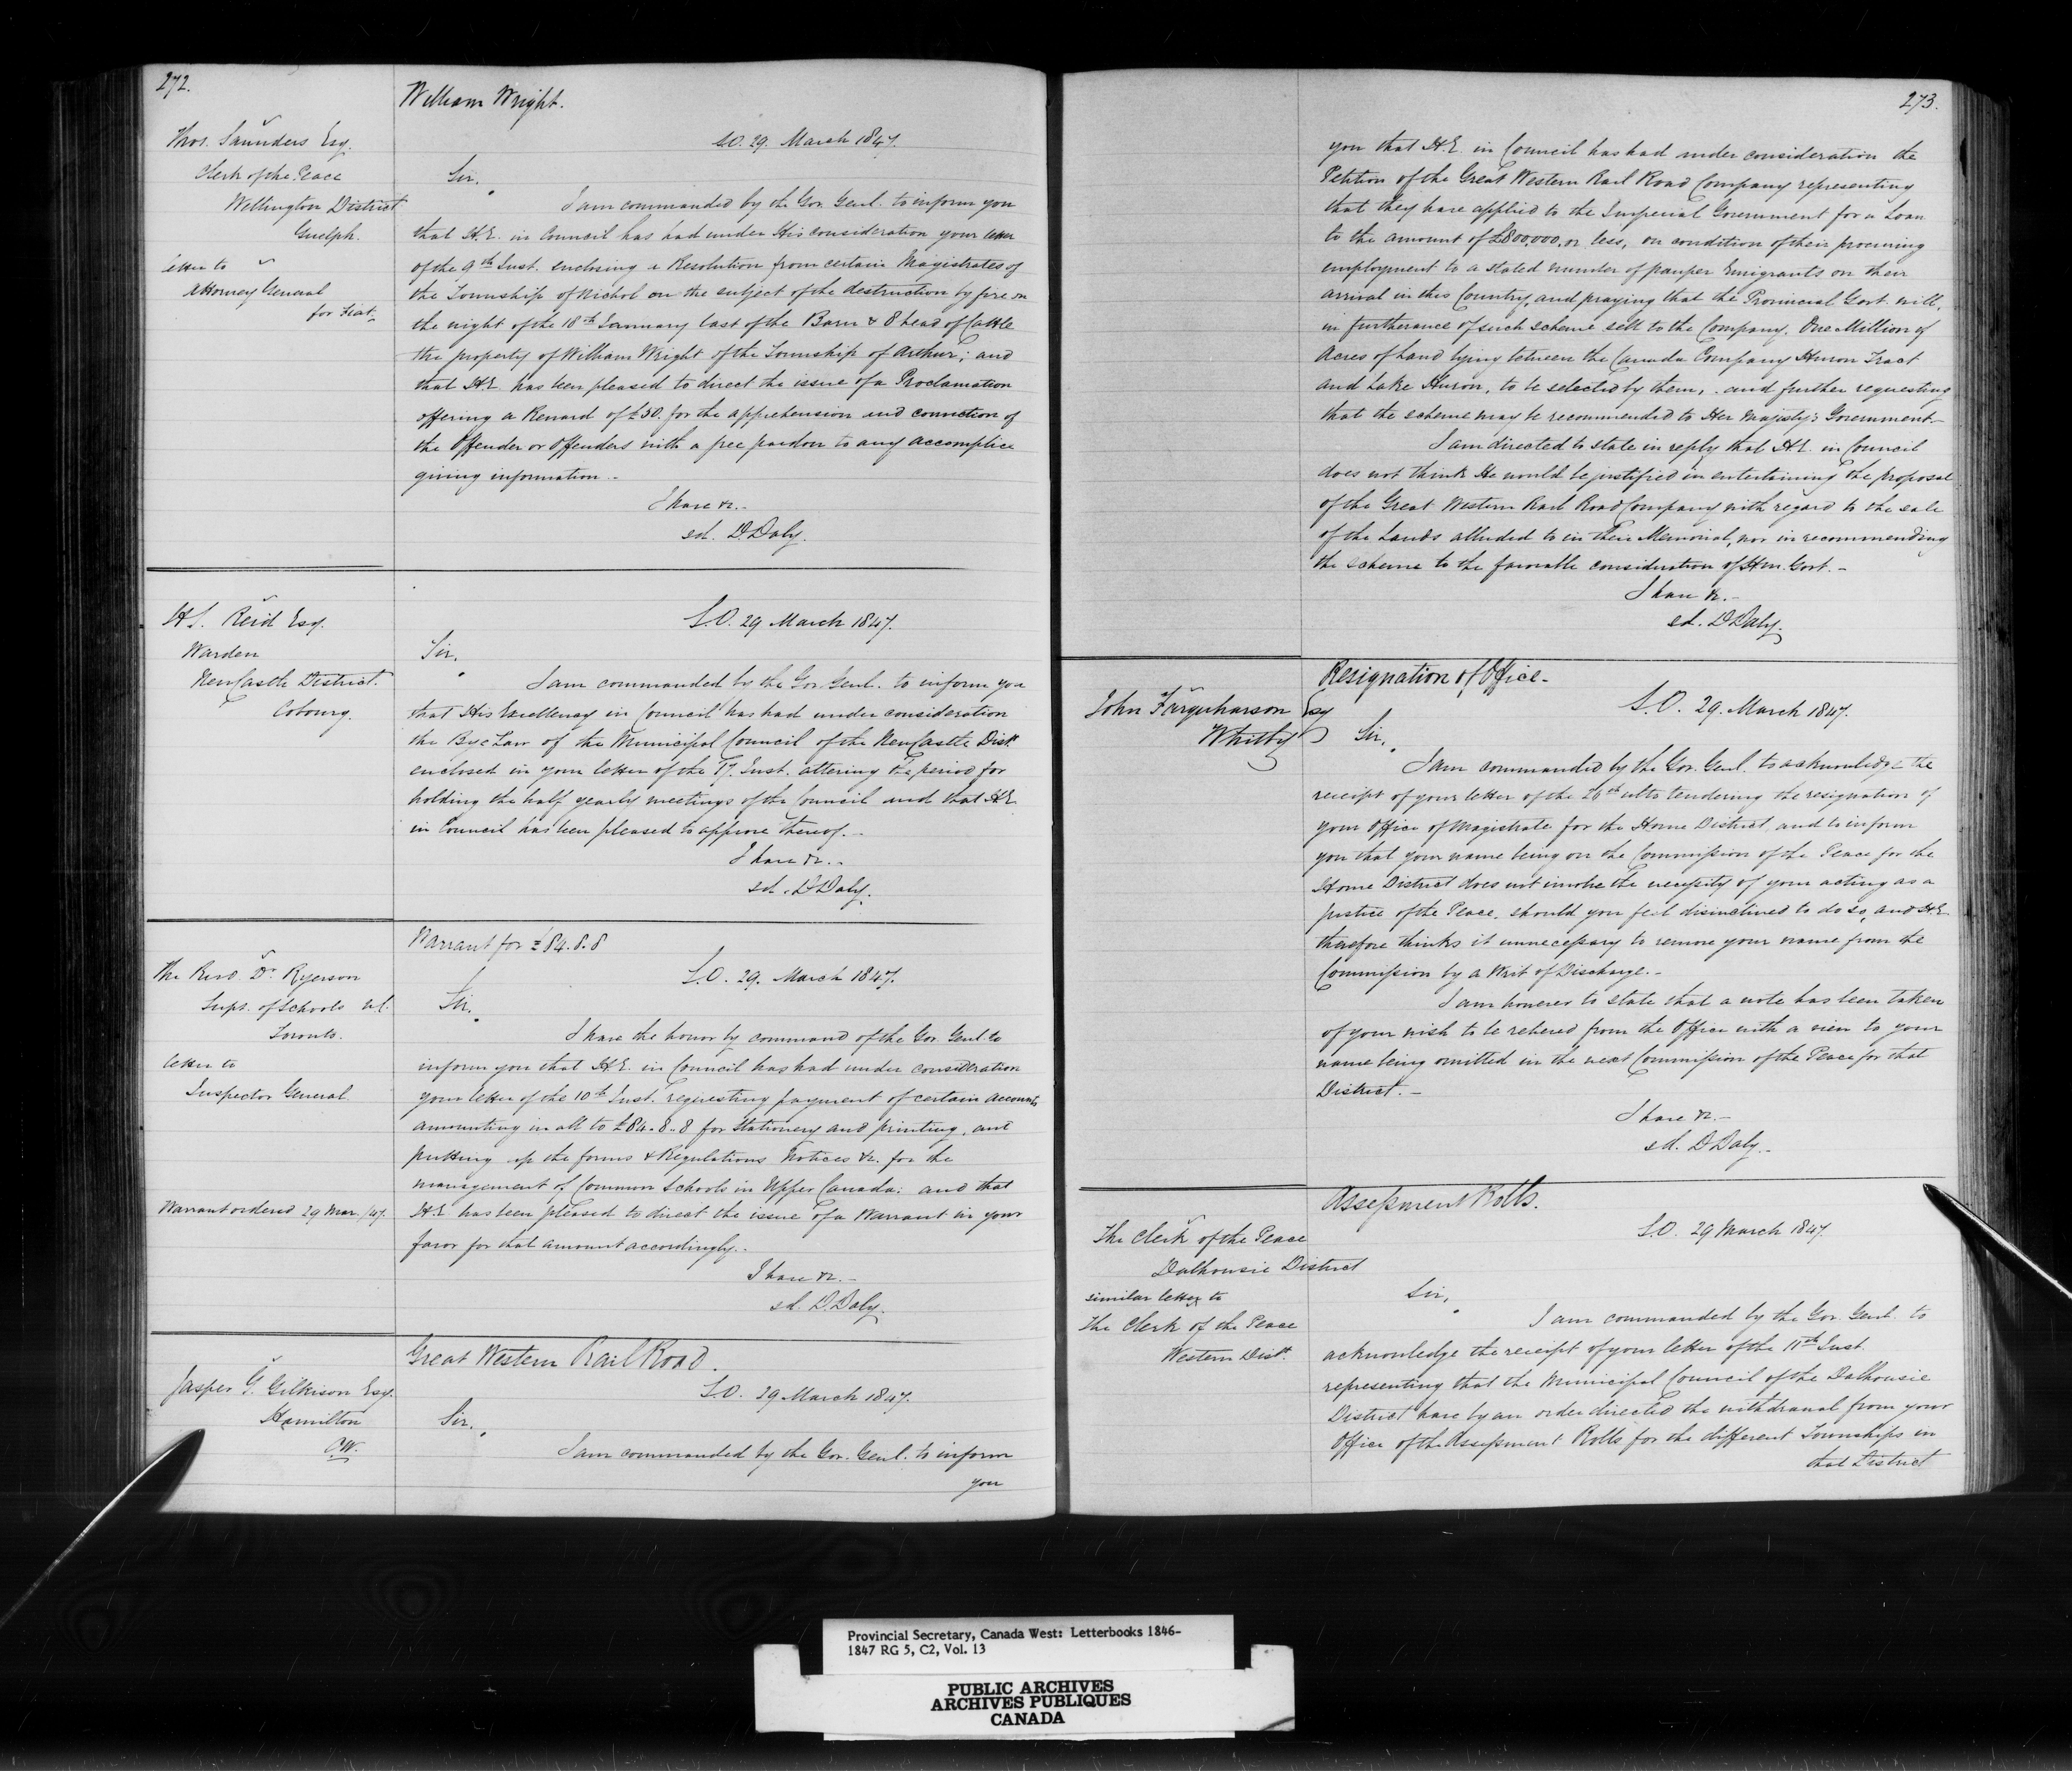 272.
William Wright.
Thos. Saunders Esq.
Clerk of the Peace
Wellington District
Guelph.
letter to
Attorney General
for Fiat.
S.O. 29. March 1847.
Sir.
I am commanded by the Gov. Genl. to inform you
that H.E. in Council has had under His consideration your letter
of the 9th Inst. enclosing a Resolution from certain Magistrates of
the Township of Nichol on the subject of the destruction by fire on
the night of the 18th January last of the Barn & 8 head of Cattle
the property of William Wright of the Township of Arthur; and
that H.E. has been pleased to direct the issue of a Proclamation
offering a Reward of £50. for the apprehension and conviction of
the Offender or Offenders with a free pardon to any accomplice
giving information.-
I have &c.-
sd. D. Daly.
H. S. Reid Esq.
Warden
NewCastle District.
Cobourg.
S.O. 29 March 1847.
Sir.
I am commanded by the Gov. Genl. to inform you
that His Excellency in Council has had under consideration
the Bye Law of the Municipal Council of the NewCastle Dist.
enclosed in your letter of the 17. Inst. altering the period for
holding the half yearly meetings of the Council and that H.E.
in Council has been pleased to approve thereof.-
I have &c.-
sd. D Daly.
Warrant for £84.8.8
The Revd. Dr. Ryerson
Supt. of Schools
Toronto.
letter to
Inspector General
Warrant ordered 29 Mar./47.
S.O. 29. March 1847.
Sir.
I have the honor by command of the Gov. Genl. to
inform you that H.E. in Council has had under consideration
your letter of the 10th Inst. requesting payment of certain accounts
amounting in all to £84.8.8 for Stationery and printing, and
putting up the forms & Regulations Notices &c. for the
management of Common Schools in Upper Canada: and that
H.E. has been pleased to direct the issue of a Warrant in your
favor for that amount accordingly.-
I have &c.-
sd. D. Daly.
Great Western Rail Road.
Jasper G. Gilkison Esq.
Hamilton
C.W.
S.O. 29 March 1847.
Sir.
I am commanded by the Gov. Genl. to inform
you
273.
you that H.E. in Council has had under consideration the
Petition of the Great Western Rail Road Company representing
that they have applied to the Imperial Government for a Loan
to the amount of £800,000, or less, on condition of their procuring
employment to a stated number of pauper Emigrants on their
arrival in this Country, and praying that the Provincial Govt. will,
in furtherance of such scheme sell to the Company. One Million of
Acres of Land lying between the Canada Company Huron Tract
and Lake Huron, to be selected by them, and further requesting
that the scheme may be recommended to Her Majesty's Government-
I am directed to state in reply that H.E. in Council
does not think He would be justified in entertaining the proposal
of the Great Western Rail Road Company with regard to the sale
of the Lands alluded to in their Memorial, nor in recommending
the scheme to the favorable consideration of Hm. Govt.-
I have &c.-
sd. D Daly.
Resignation of Office-
John Farquharson Esq
Whitby
S.O. 29. March 1847.
Sir,
I am commanded by the Gov. Genl. to acknowledge the
receipt of your letter of the 26th ulto tendering the resignation of
your Office of Magistrate for the Home District, and to inform
you that your name being on the Commission of the Peace for the
Home District does not involve the necessity of your acting as a
Justice of the Peace, should you feel disinclined to do so, and H.E.
therefore thinks it unnecessary to remove your name from the
Commission by a Writ of Discharge.-
I am however to state that a note has been taken
of your wish to be relieved from the Office with a view to your
name being omitted in the next Commission of the Peace for that
District.-
I have &c.-
sd. D Daly.-
Assessment Rolls.
The Clerk of the Peace
Dalhousie District
similar letter to
the Clerk of the Peace
Western Dist.
S.O. 29 March 1847.
Sir,
I am commanded by the Gov. Genl. to
acknowledge the receipt of your letter of the 11th Inst.
representing that the Municipal Council of the Dalhousie
District have by an order directed the withdrawal from your
Office of the Assessment Rolls for the different Townships in
that District
Provincial Secretary, Canada West: Letterbooks 1846-
1847 RG 5, C2, Vol. 13
PUBLIC ARCHIVES
ARCHIVES PUBLIQUES
CANADA